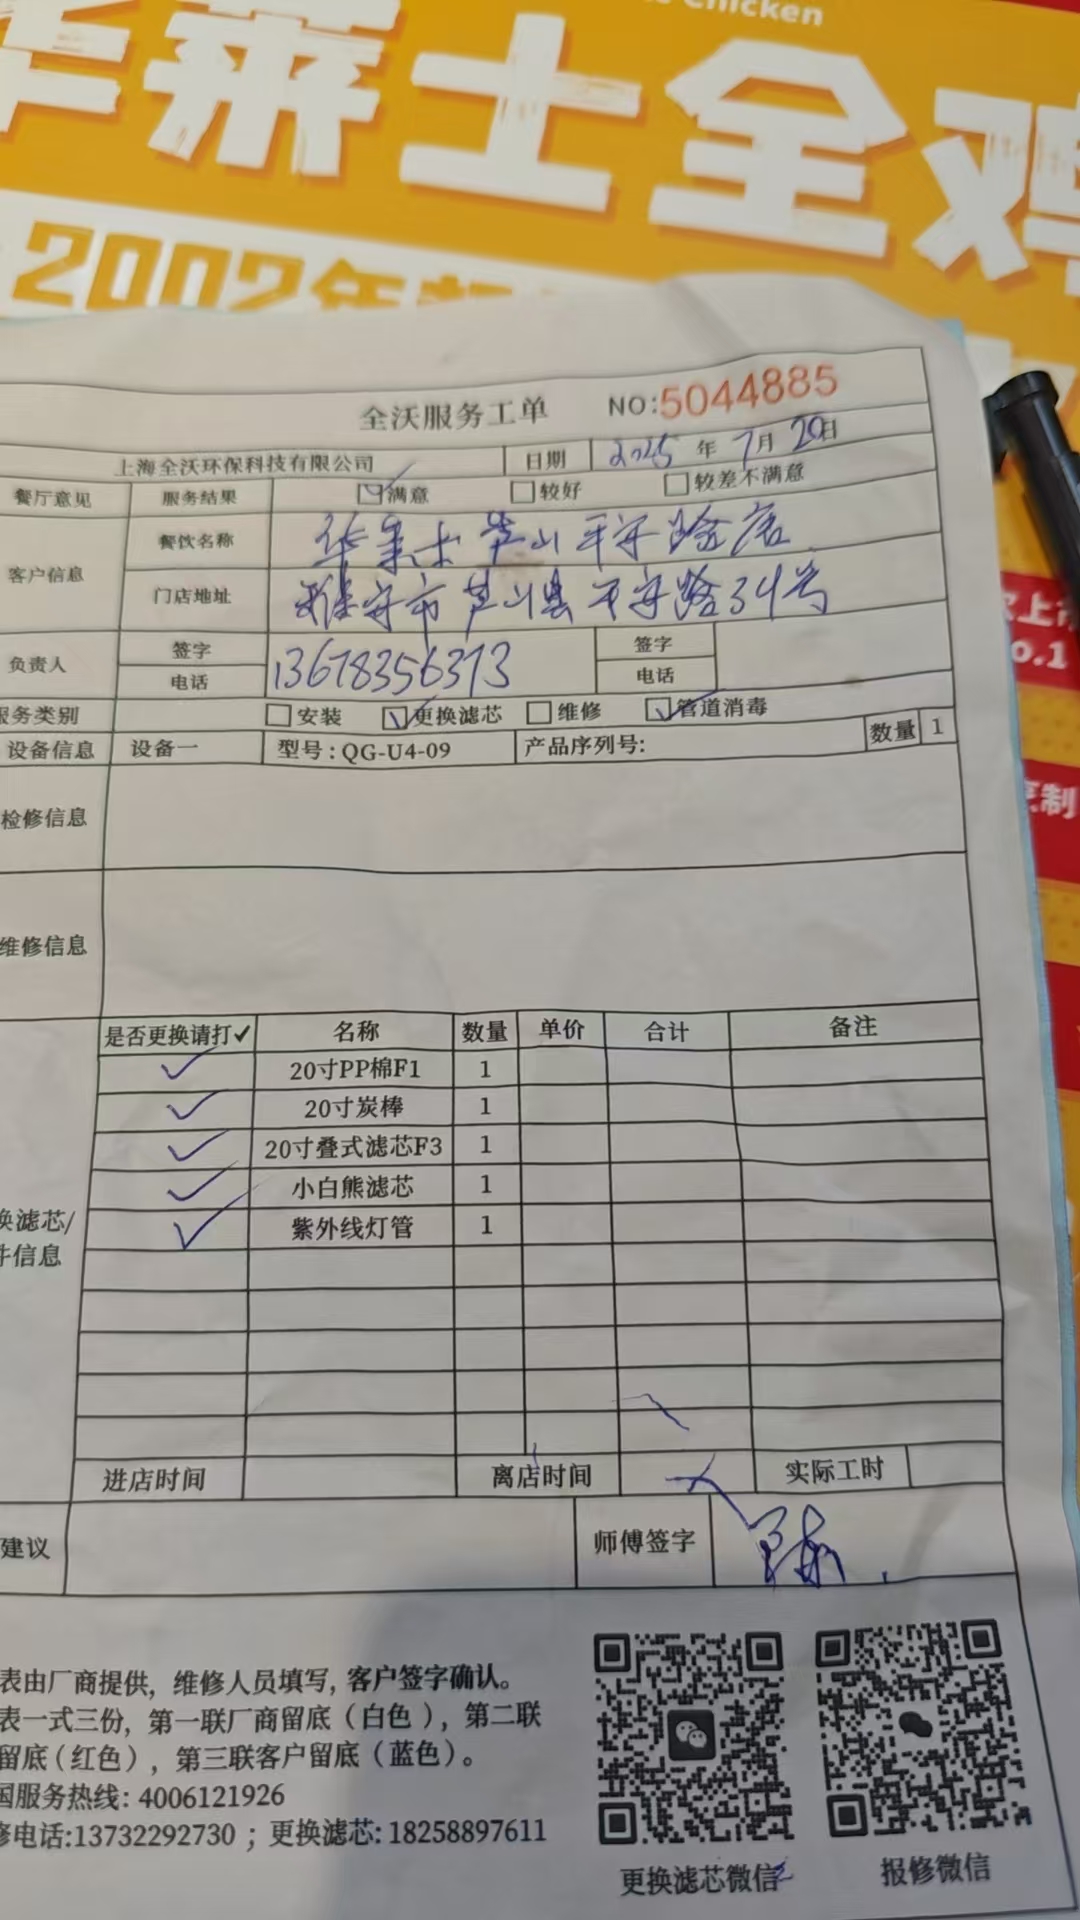 Chicken
华莱士全鸡
2002年
全沃服务工单 NO:5044885
上海全沃环保科技有限公司 日期 2025年7月20日
餐厅意见 服务结果 ☑满意 □较好 □较差不满意
客户信息 餐饮名称 华莱士芦山平安路店
门店地址 雅安市芦山县平安路34号
负责人 签字 签字
电话 13678356373 电话
服务类别 □安装 ☑更换滤芯 □维修 ☑管道消毒
设备信息 设备一 型号:QG-U4-09 产品序列号: 数量 1
检修信息
维修信息
是否更换请打✓ 名称 数量 单价 合计 备注
✓ 20寸PP棉F1 1
✓ 20寸炭棒 1
✓ 20寸叠式滤芯F3 1
✓ 小白熊滤芯 1
✓ 紫外线灯管 1
换滤芯/
件信息
进店时间 离店时间 实际工时
建议 师傅签字
表由厂商提供, 维修人员填写, 客户签字确认。
表一式三份, 第一联厂商留底(白色), 第二联
留底(红色), 第三联客户留底(蓝色)。
国服务热线: 4006121926
修电话:13732292730 ; 更换滤芯: 18258897611
更换滤芯微信 报修微信
上海
o.1
制